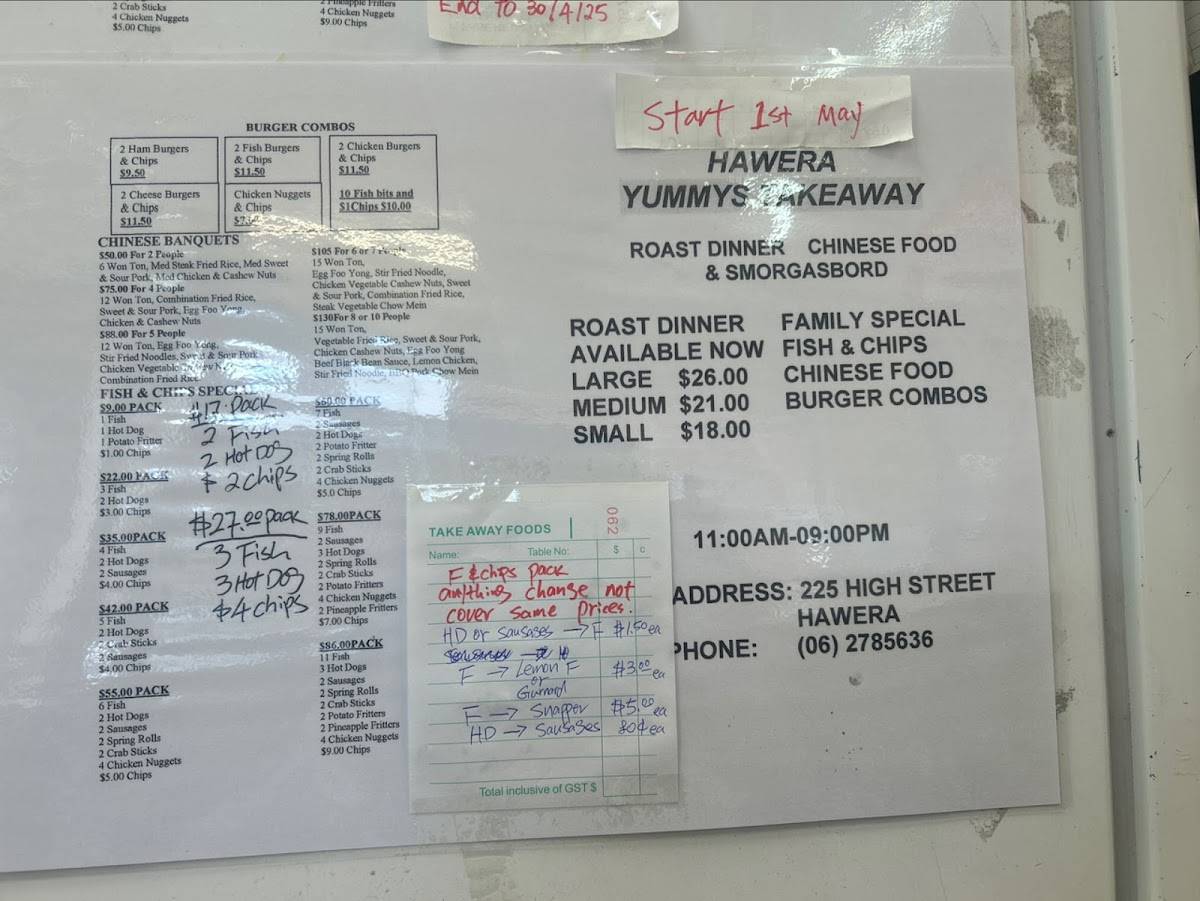 2 Crab Sticks
4 Chicken Nuggets
$5.00 Chips
2 Pineapple Fritters
4 Chicken Nuggets
$9.00 Chips
End To 30/4/25
BURGER COMBOS
2 Ham Burgers
& Chips
$9.50
2 Fish Burgers
& Chips
$11.50
2 Chicken Burgers
& Chips
$11.50
2 Cheese Burgers
& Chips
$11.50
Chicken Nuggets
& Chips
10 Fish bits and
$1Chips $10.00
CHINESE BANQUETS
$50.00 For 2 People
6 Won Ton, Med Steak Fried Rice, Med Sweet
& Sour Pork, Med Chicken & Cashew Nuts
$75.00 For 4 People
12 Won Ton, Combination Fried Rice,
Sweet & Sour Pork, Egg Foo Yong,
Chicken & Cashew Nuts
$88.00 For 5 People
12 Won Ton, Egg Foo Yong,
Stir Fried Noodles, Sweet & Sour Pork
Chicken Vegetable
Combination Fried Rice
$105 For 6 or 7 People
15 Won Ton,
Egg Foo Yong, Stir Fried Noodle,
Chicken Vegetable Cashew Nuts, Sweet
& Sour Pork, Combination Fried Rice,
Steak Vegetable Chow Mein
$130For 8 or 10 People
15 Won Ton,
Vegetable Fried Rice, Sweet & Sour Pork,
Chicken Cashew Nuts, Egg Foo Yong
Beef Black Bean Sauce, Lemon Chicken,
Stir Fried Noodle, BBQ Pork Chow Mein
FISH & CHIPS SPECIAL
$9.00 PACK
1 Fish
1 Hot Dog
1 Potato Fritter
$1.00 Chips
$22.00 PACK
3 Fish
2 Hot Dogs
$3.00 Chips
$35.00PACK
4 Fish
2 Hot Dogs
2 Sausages
$4.00 Chips
$42.00 PACK
5 Fish
2 Hot Dogs
2 Crab Sticks
2 Sausages
$4.00 Chips
$55.00 PACK
6 Fish
2 Hot Dogs
2 Sausages
2 Spring Rolls
2 Crab Sticks
4 Chicken Nuggets
$5.00 Chips
$17. Pack
2 Fish
2 Hot DOG
$ 2 chips
$27.00 pack
3 Fish
3 Hot DOG
$4 chips
$60.00 PACK
7 Fish
2 Sausages
2 Hot Dogs
2 Potato Fritter
2 Spring Rolls
2 Crab Sticks
4 Chicken Nuggets
$5.0 Chips
$78.00PACK
9 Fish
2 Sausages
3 Hot Dogs
2 Spring Rolls
2 Crab Sticks
2 Potato Fritters
4 Chicken Nuggets
2 Pineapple Fritters
$7.00 Chips
$86.00PACK
11 Fish
3 Hot Dogs
2 Sausages
2 Spring Rolls
2 Crab Sticks
2 Potato Fritters
2 Pineapple Fritters
4 Chicken Nuggets
$9.00 Chips
TAKE AWAY FOODS
062
Name: Table No: $ c
F & chips pack
anything change not
cover same prices.
HD or Sausases → F $1.50 ea
F → Lemon F $3.00 ea
or
Gurnard
F → Snapper $5.00 ea
HD → Sausases 80¢ ea
Total inclusive of GST $
Start 1st May
HAWERA
YUMMYS TAKEAWAY
ROAST DINNER CHINESE FOOD
& SMORGASBORD
ROAST DINNER
AVAILABLE NOW
LARGE $26.00
MEDIUM $21.00
SMALL $18.00
FAMILY SPECIAL
FISH & CHIPS
CHINESE FOOD
BURGER COMBOS
11:00AM-09:00PM
ADDRESS: 225 HIGH STREET
HAWERA
PHONE: (06) 2785636